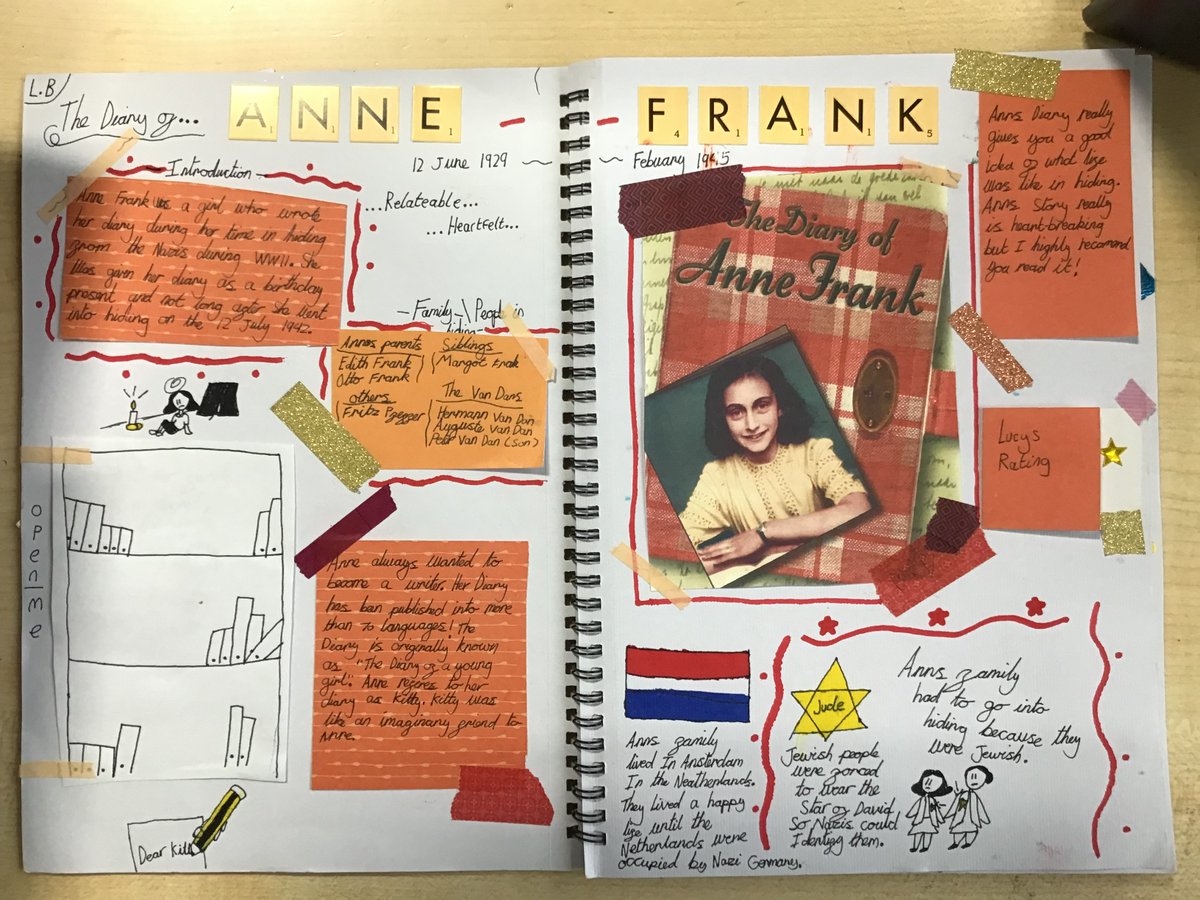 L.B
The Diary of...
ANNE
12 June 1929
Introduction
Anne Frank was a girl who wrote
her diary during her time in hiding
from the Nazis during WWII. She
was given her diary as a birthday
present and not long after she went
into hiding on the 12th July 1942.
...Relateable...
...Heartfelt...
Family \ People in
hiding
Annes parents
Edith Frank
Otto Frank
Siblings
Margot Frak
others
Fritz Pfeffer
The Van Dans
Hermann Van Dan
Auguste Van Dan
Peter Van Dan (Son)
open me
Anne always wanted to
become a writer. Her Diary
has ben published into more
than 70 languages! The
Diary is originally known
as "The Diary of a young
girl". Anne referes to her
diary as Kitty. Kitty was
like an imaginary friend to
Anne.
Dear Kitt
FRANK
Febuary 1945
The Diary of
Anne Frank
Anns Diary really
gives you a good
idea of what life
was like in hiding.
Anns Story really
is heart-breaking
but I highly recomend
you read it!
Lucy's
Rating
Anns family
lived In Amsterdam
In the Neatherlands.
They lived a happy
life until the
Netherlands were
occupied by Nazi Germany.
Jude
Jewish people
were forced
to wear the
Star of David
So Nazis could
Identify them.
Anns family
had to go into
hiding because they
were Jewish.